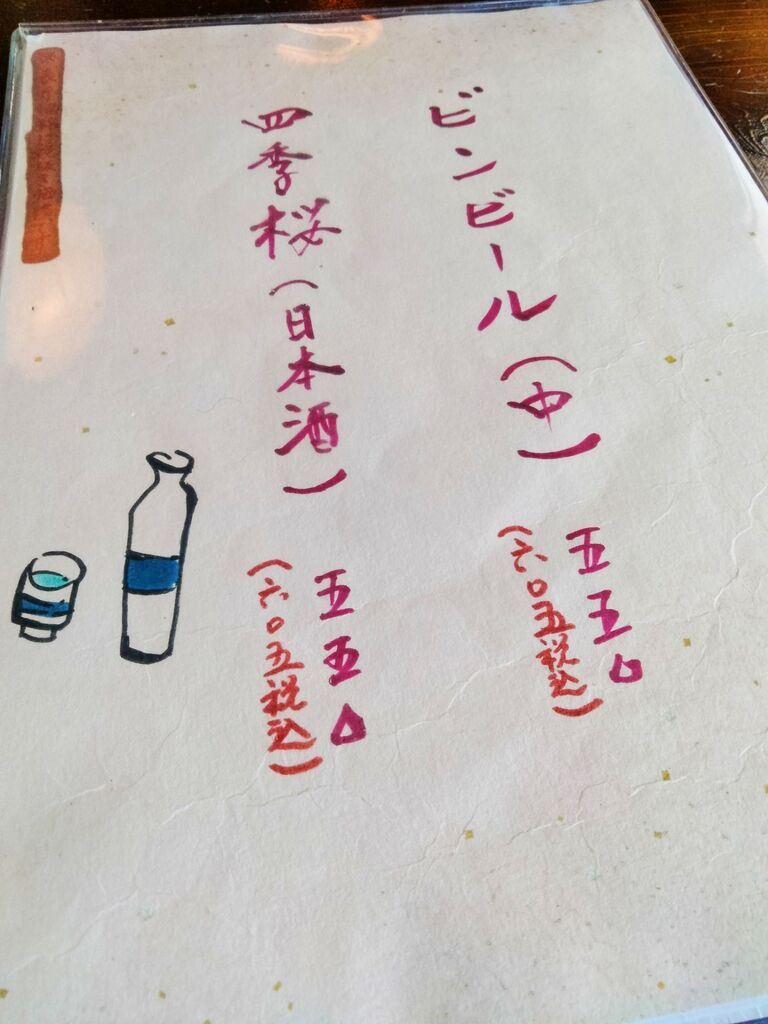 ビンビール(中)
五五〇
(六〇五税込)
四季桜(日本酒)
五五〇
(六〇五税込)